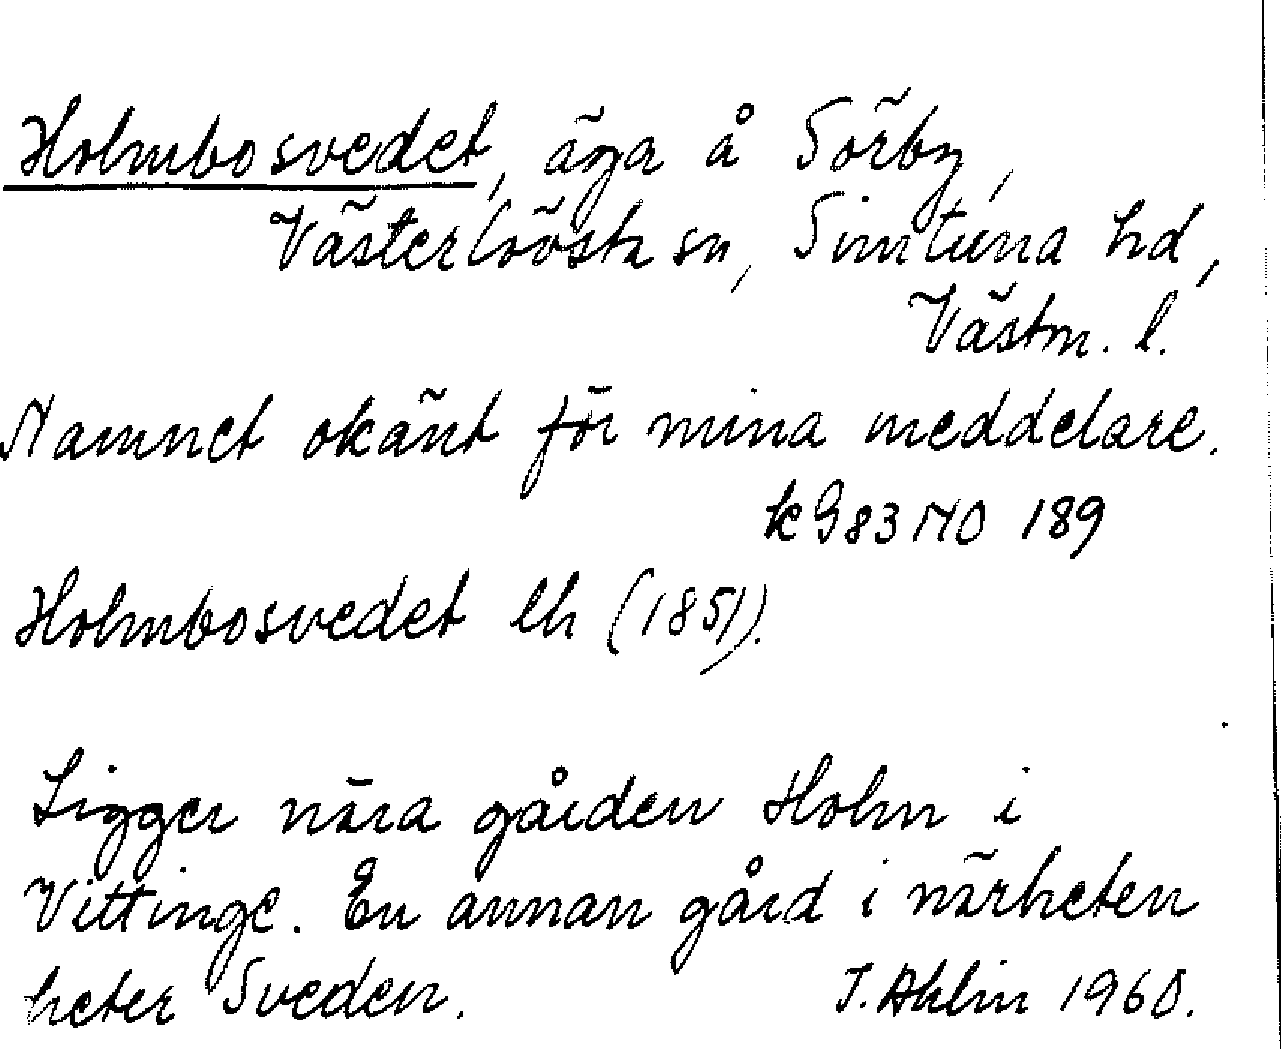 Holmbosvedet, äga å Sörby,
Västerlövsta sn, Simtuna hd,
Västm. l.
Namnet okänt för mina meddelare.
k 983 NO 189
Holmbosvedet lh (1851).
Ligger nära gården Holm i
Vittinge. En annan gård i närheten
heter Sveden. I. Ahlin 1960.